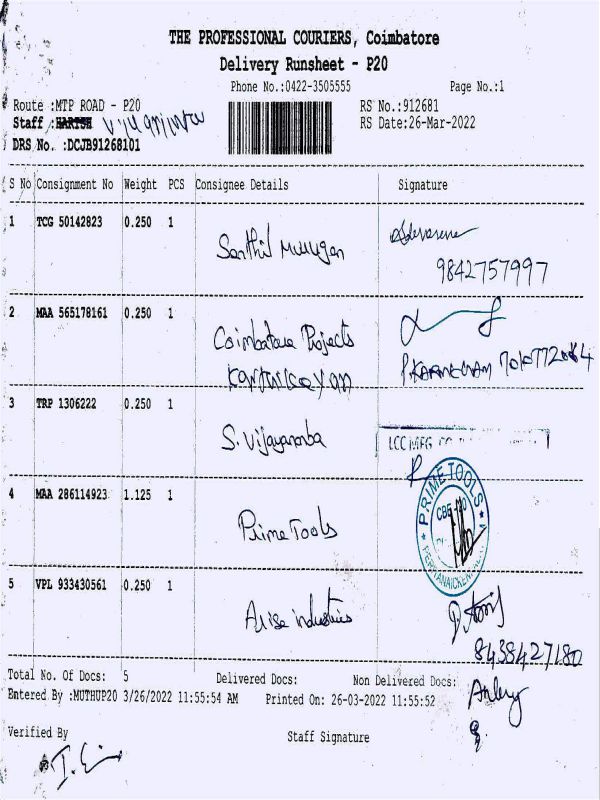 THE PROFESSIONAL COURIERS, Coimbatore
Delivery Runsheet - P20
Phone No.:0422-3505555 Page No.:1
Route :MTP ROAD - P20 RS No.:912681
Staff :HARISH RS Date:26-Mar-2022
DRS No. :DCJB91268101
S No Consignment No Weight PCS Consignee Details Signature
1 TCG 50142823 0.250 1
Senthil Murugan
9842757997
2 MAA 565178161 0.250 1
Coimbatore Projects
Karthikeyan
3 TRP 1306222 0.250 1
S. Vijayanamba
LCC MFG CO
4 MAA 286114923 1.125 1
PRIME TOOLS
Prime Tools
5 VPL 933430561 0.250 1
Arise industries
8438427180
Total No. Of Docs: 5 Delivered Docs: Non Delivered Docs:
Entered By :MUTHUP20 3/26/2022 11:55:54 AM Printed On: 26-03-2022 11:55:52
Verified By Staff Signature